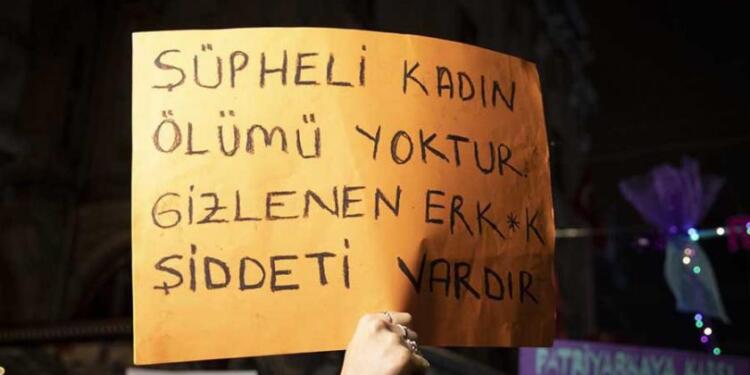 ŞÜPHELİ KADIN
ÖLÜMÜ YOKTUR.
GİZLENEN ERK*K
ŞİDDETİ VARDIR
PATRİYARKAYA